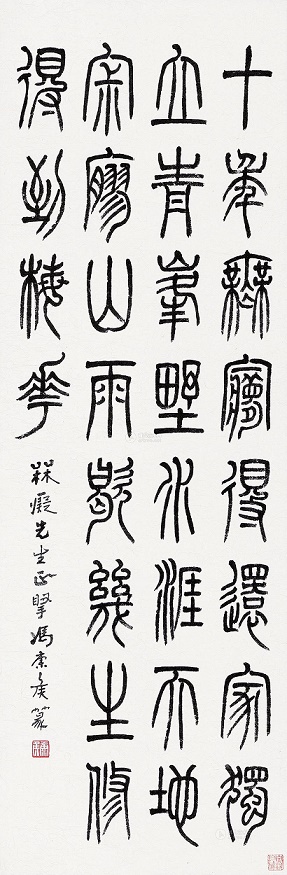 十年無夢得還家獨
立青峯野水涯天地
寂寥山雨歇幾生修
得到梅花
癡先生正 馮康侯篆